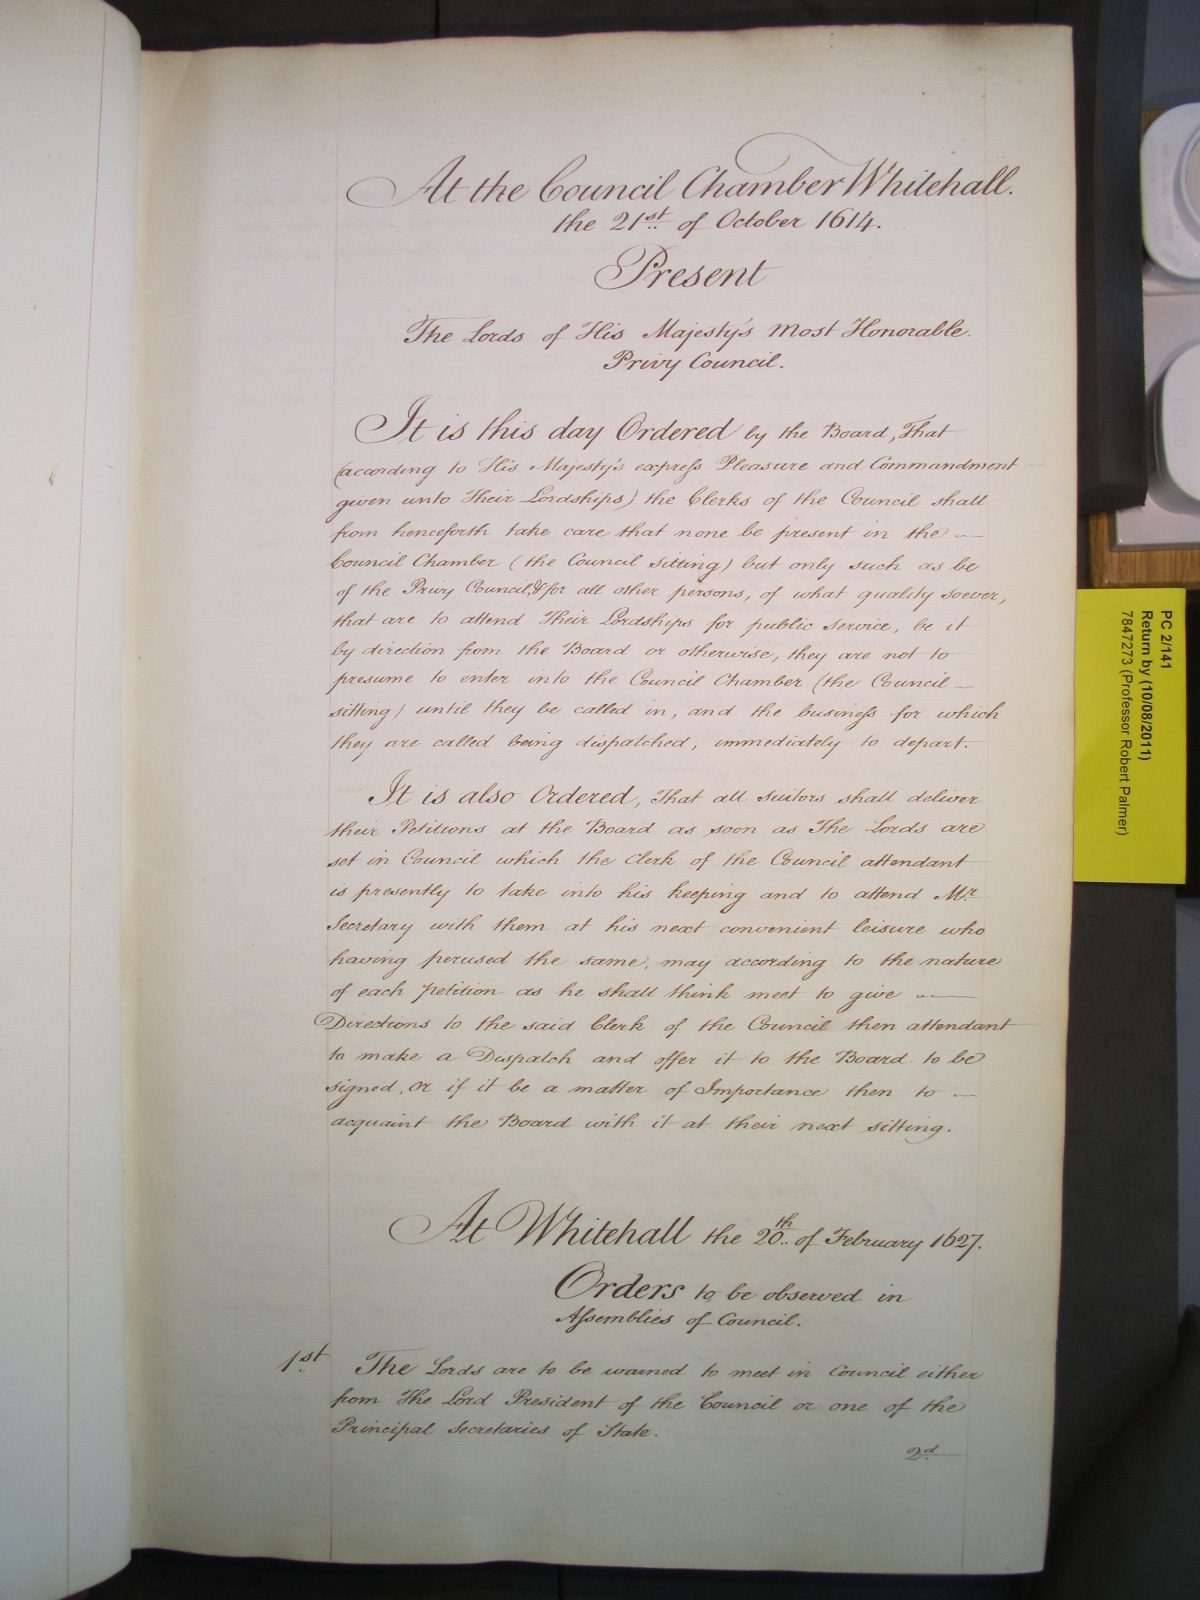 At the Council Chamber Whitehall.
the 21st of October 1614.
Present
The Lords of His Majesty's Most Honorable
Privy Council.
It is this day Ordered by the Board, That
(according to His Majesty's express Pleasure and Commandment
given unto Their Lordships) the Clerks of the Council shall
from henceforth take care that none be present in the
Council Chamber (the Council sitting) but only such as be
of the Privy Council, & for all other persons, of what quality soever,
that are to attend Their Lordships for public Service, be it
by direction from the Board or otherwise, they are not to
presume to enter into the Council Chamber (the Council
sitting) until they be called in, and the business for which
they are called being dispatched, immediately to depart.
It is also Ordered, That all Suitors shall deliver
their Petitions at the Board as soon as The Lords are
set in Council which the Clerk of the Council attendant
is presently to take into his keeping and to attend Mr.
Secretary with them at his next convenient leisure who
having perused the same, may according to the nature
of each Petition as he shall think meet to give
Directions to the said Clerk of the Council then attendant
to make a Dispatch and offer it to the Board to be
signed, Or if it be a matter of Importance then to
acquaint the Board with it at their next sitting.
At Whitehall the 20th of February 1627.
Orders to be observed in
Assemblies of Council.
1st The Lords are to be warned to meet in Council either
from The Lord President of the Council or one of the
Principal Secretaries of State.
2d
PC 2/141
Return by (10/08/2011)
7847273 (Professor Robert Palmer)